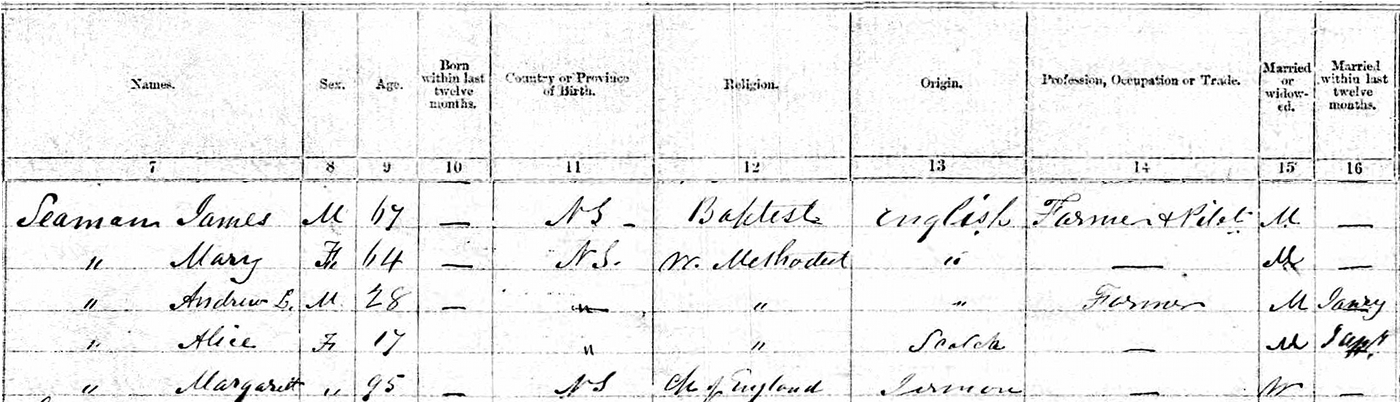 Names. Sex. Age. Born within last twelve months. Country or Province of Birth. Religion. Origin. Profession, Occupation or Trade. Married or widowed. Married within last twelve months.
7 8 9 10 11 12 13 14 15 16
Seaman James M 67 — NS — Baptist English Farmer & Pilot M. —
" Mary F. 64 — NS. W. Methodist " — M —
" Andrew M. 28 — " " " Farmer M Janry
" Alice F 17 " " Scotch — M
" Margarett " 95 — NS Ch of England German — W —